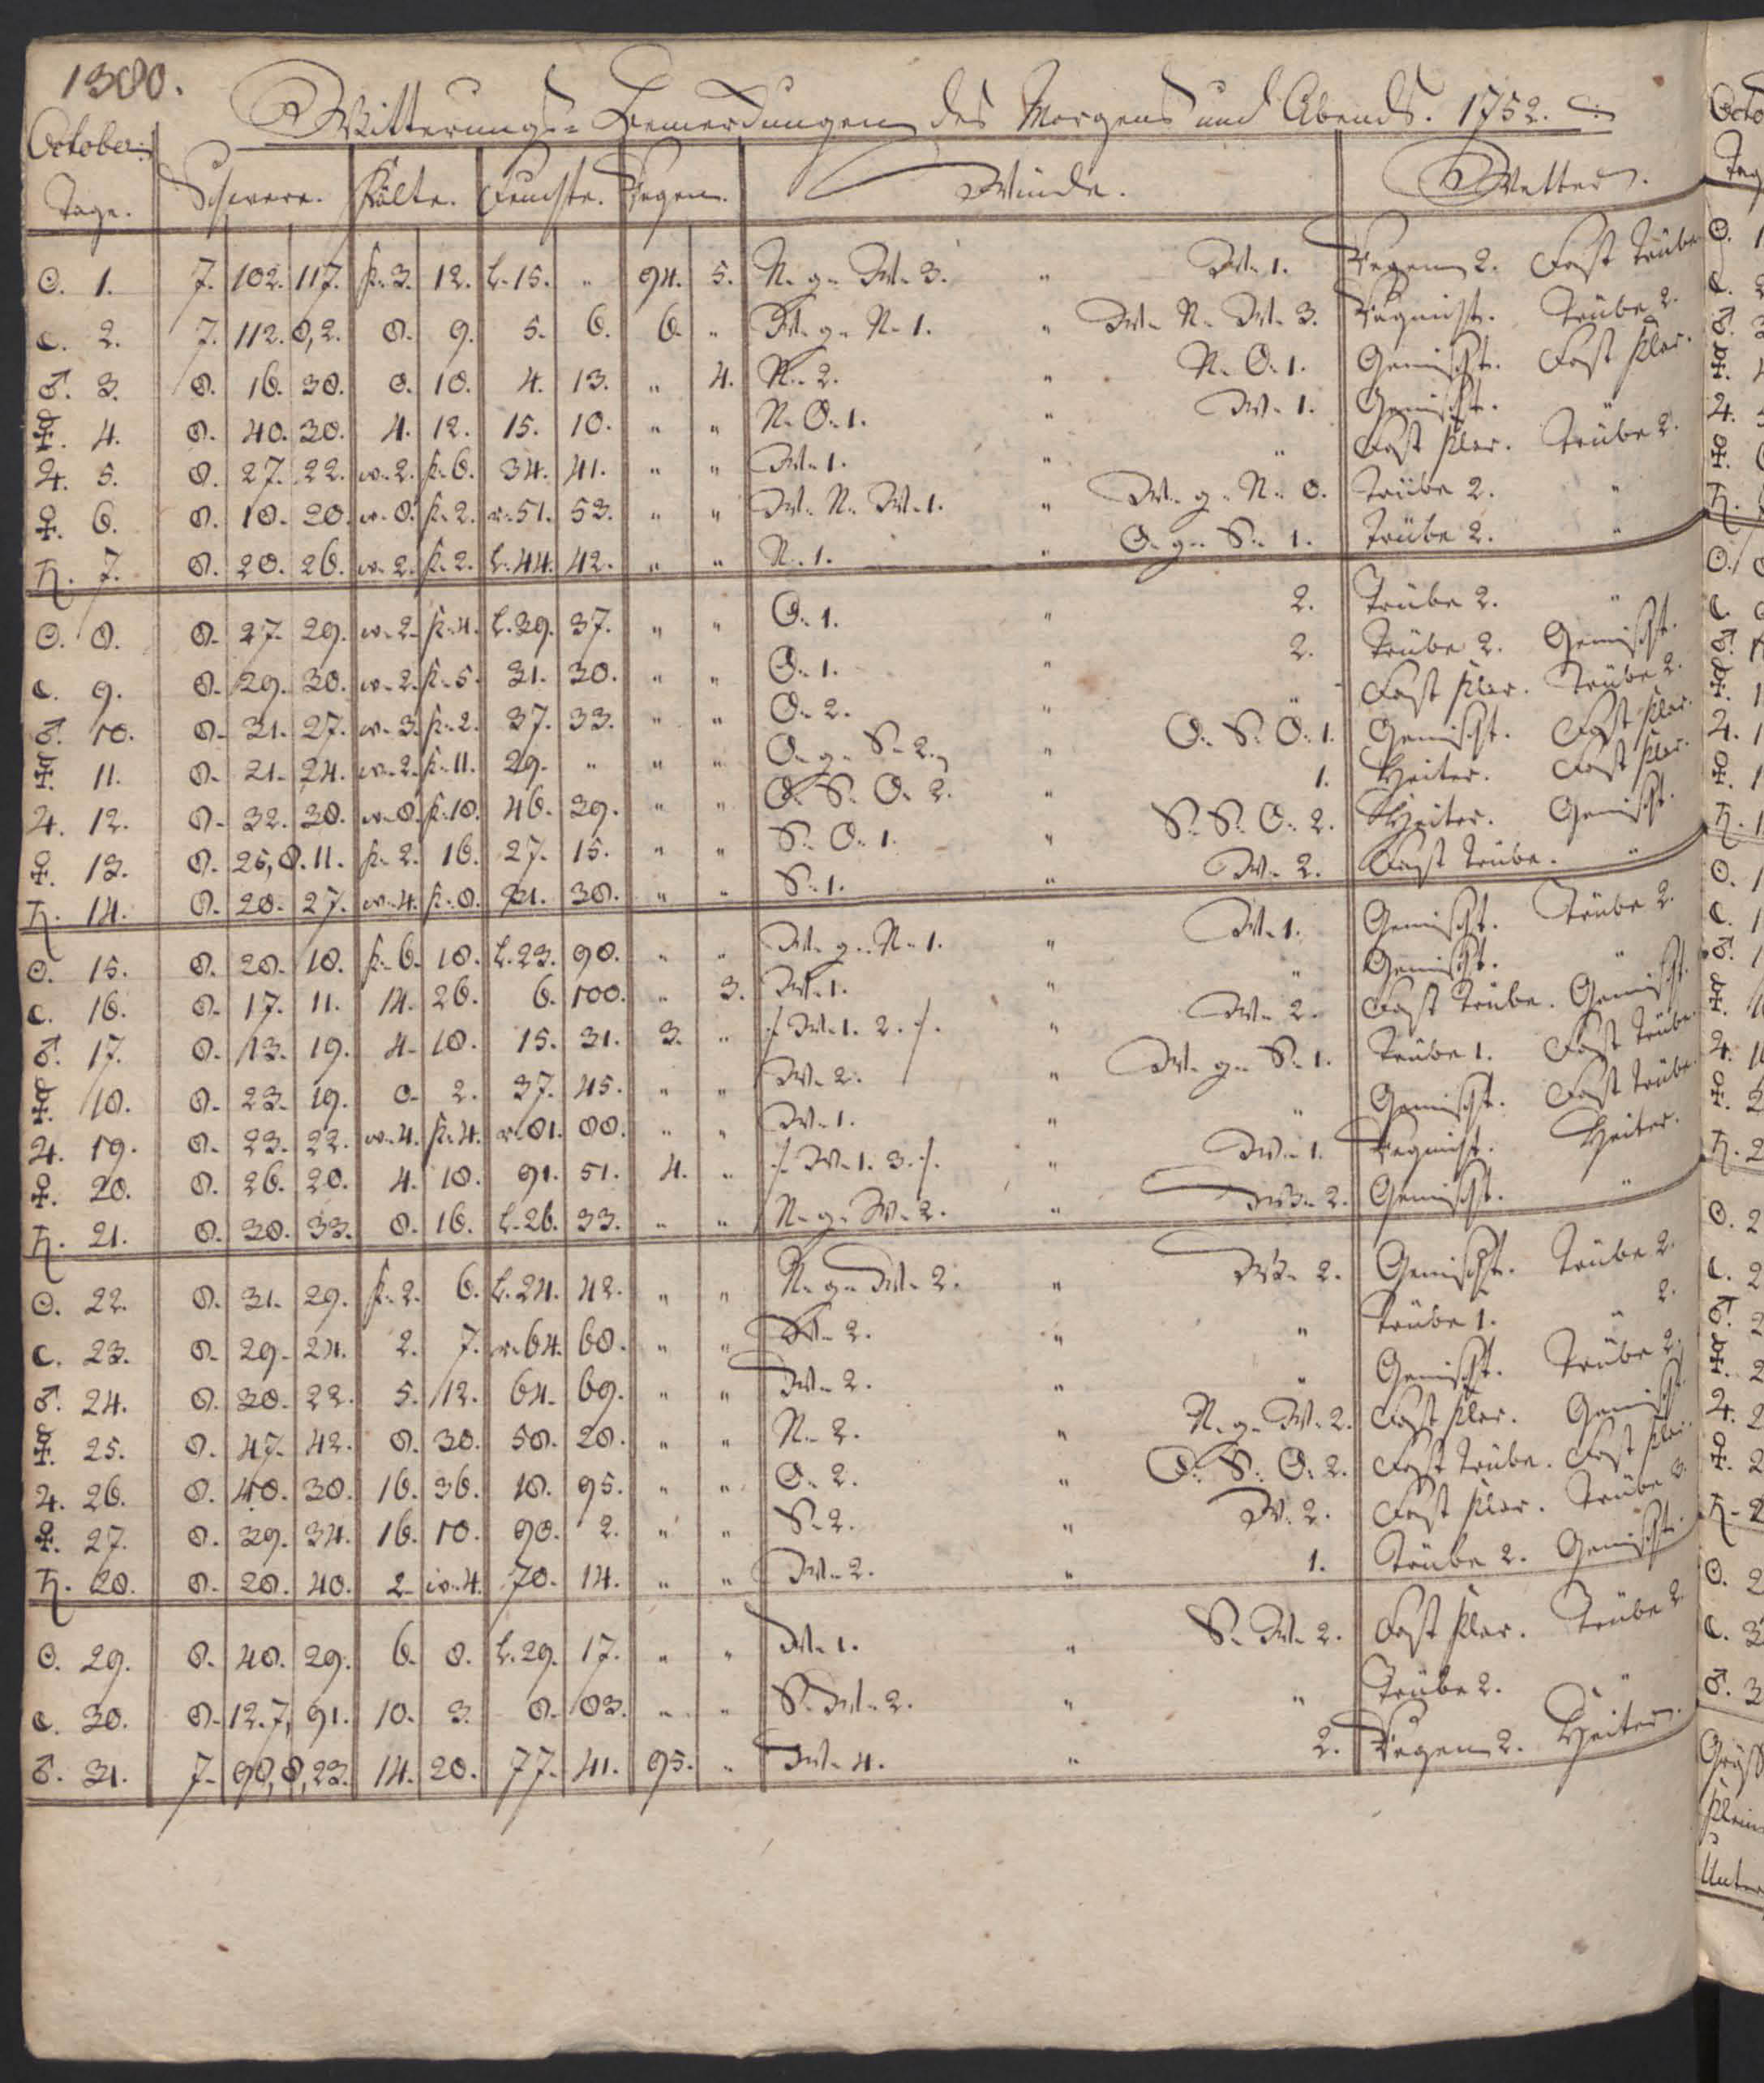 1380.
Witterungs-Bemerckungen des Morgens und Abends. 1752.
October.
Tage. Schwere. Kälte. Feuchte. Regen. Winde. Wetter.
☉. 1. 7. 102. 117. k. 3. 12. L. 15. " 94. 5. N. g. W. 3. " W. 1. Regen 2. Fast trübe
☾. 2. 7. 112. 8, 2. 8. 9. 5. 6. 6. " W. g. N. 1. " W. N. W. 3. Regnicht. Trübe 2.
♂. 3. 8. 16. 38. 8. 18. 4. 13. " 4. N. 2. " N. O. 1. Gemischt. Fast klar.
☿. 4. 8. 40. 30. 4. 12. 15. 10. " " N. O. 1. " W. 1. Gemischt.
♃. 5. 8. 27. 22. w. 2. k. 6. 34. 41. " " W. 1. " " Fast klar. Trübe 2.
♀. 6. 8. 18. 20. w. 8. k. 2. r. 51. 53. " " W. N. W. 1. " W. g. N. 0. Trübe 2. "
♄. 7. 8. 20. 26. w. 2. k. 2. L. 44. 42. " " N. 1. " O. g. S. 1. Trübe 2. "
☉. 8. 8. 27. 29. w. 2. k. 4. L. 39. 37. " " O. 1. " 2. Trübe 2. "
☾. 9. 8. 29. 30. w. 2. k. 5. 31. 30. " " O. 1. " 2. Trübe 2. Gemischt.
♂. 10. 8. 31. 27. w. 3. k. 2. 37. 33. " " O. 2. " " Fast klar. Trübe 2.
☿. 11. 8. 21. 24. w. 2. k. 11. 29. " " " O. g. S. 2. " O. S. O. 1. Gemischt. Fast klar.
♃. 12. 8. 32. 30. w. 8. k. 10. 46. 39. " " O. S. O. 2. " 1. Heiter. Fast klar.
♀. 13. 8. 25, 8. 11. k. 2. 16. 27. 15. " " S. O. 1. " S. S. O. 2. Heiter. Gemischt.
♄. 14. 8. 20. 27. w. 4. k. 8. 21. 38. " " S. 1. " W. 2. Fast trübe. "
☉. 15. 8. 28. 18. k. 6. 18. L. 23. 98. " " W. g. N. 1. " W. 1. Gemischt. Trübe 2.
☾. 16. 8. 17. 11. 14. 26. 6. 100. " 3. W. 1. " " Gemischt. "
♂. 17. 8. 13. 19. 4. 18. 15. 31. 3. " /. W. 1. 2. /. " W. 2. Fast trübe. Gemischt.
☿. 18. 8. 23. 19. 0. 2. 37. 45. " " W. 2. " W. g. S. 1. Trübe 1. Fast trübe.
♃. 19. 8. 23. 22. w. 4. k. 4. r. 81. 88. " " W. 1. " " Gemischt. Fast trübe.
♀. 20. 8. 26. 20. 4. 18. 91. 51. 4. " /. W. 1. 3. /. " W. 1. Regnicht. Heiter.
♄. 21. 8. 30. 33. 8. 16. L. 26. 33. " " N. g. W. 2. " W. 2. Gemischt. "
☉. 22. 8. 31. 29. k. 2. 6. L. 24. 42. " " N. g. W. 2. " W. 2. Gemischt. Trübe 2.
☾. 23. 8. 29. 24. 2. 7. r. 64. 68. " " W. 2. " " Trübe 1. " 2.
♂. 24. 8. 30. 22. 5. 12. 64. 69. " " W. 2. " " Gemischt. Trübe 2.
☿. 25. 8. 47. 42. 8. 30. 58. 28. " " N. 2. " N. g. W. 2. Fast klar. Gemischt.
♃. 26. 8. 48. 38. 16. 36. 18. 95. " " O. 2. " O. S. O. 2. Fast trübe. Fast klar.
♀. 27. 8. 39. 34. 16. 10. 90. 2. " " S. 2. " W. 2. Fast klar. Trübe 3.
♄. 28. 8. 28. 40. 2. w. 4. 70. 14. " " W. 2. " 1. Trübe 2. Gemischt.
☉. 29. 8. 40. 29. 6. 8. L. 29. 17. " " W. 1. " S. W. 2. Fast klar. Trübe 2.
☾. 30. 8. 12. 7, 91. 10. 3. 8. 83. " " S. W. 2. " " Trübe 2. "
♂. 31. 7. 98, 8, 23. 14. 20. 77. 41. 95. " W. 4. " 2. Regen 2. Heiter.